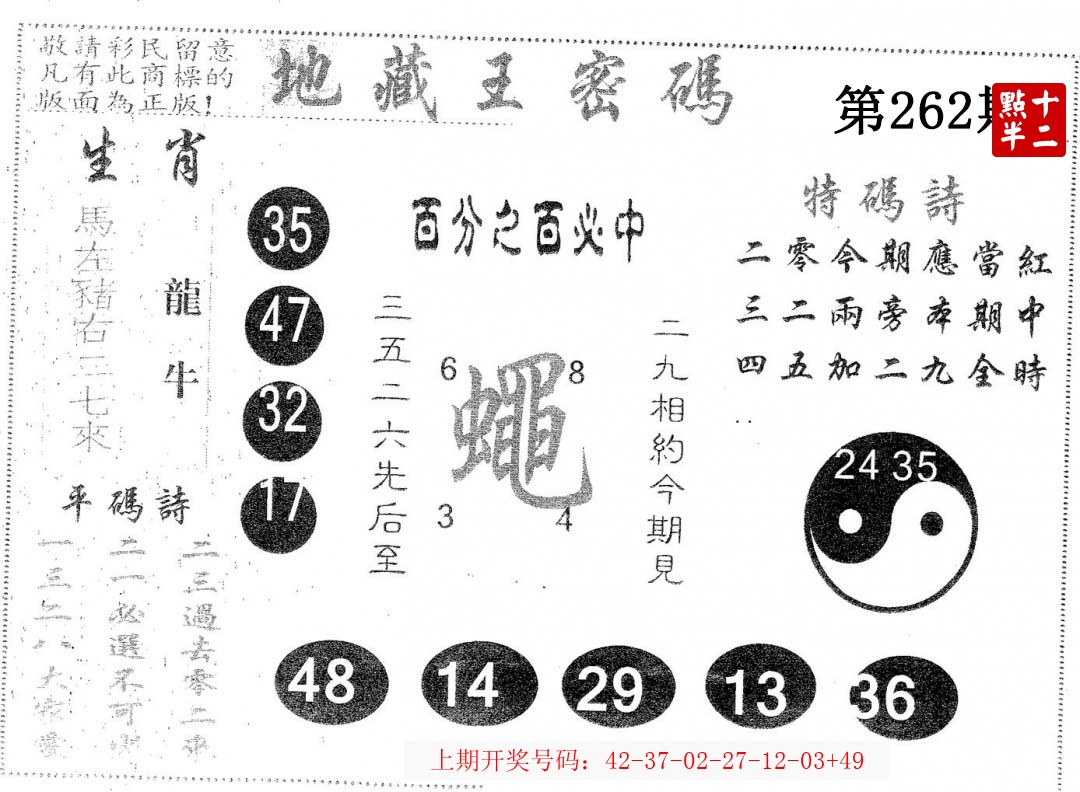 敬請彩民留意
凡有此商標的
版面為正版!
地藏王密碼
第262期
十二
點半
生肖
馬左豬右二七來
龍牛
平碼詩
二三過去零二來
二一必選不可
一三二八大家愛
35
47
32
17
百分之百必中
三五二六先后至
6
8
蠅
3
4
二九相約今期見
特碼詩
二零今期應當紅
三二兩旁本期中
四五加二九全時
24 35
48
14
29
13
36
上期开奖号码：42-37-02-27-12-03+49